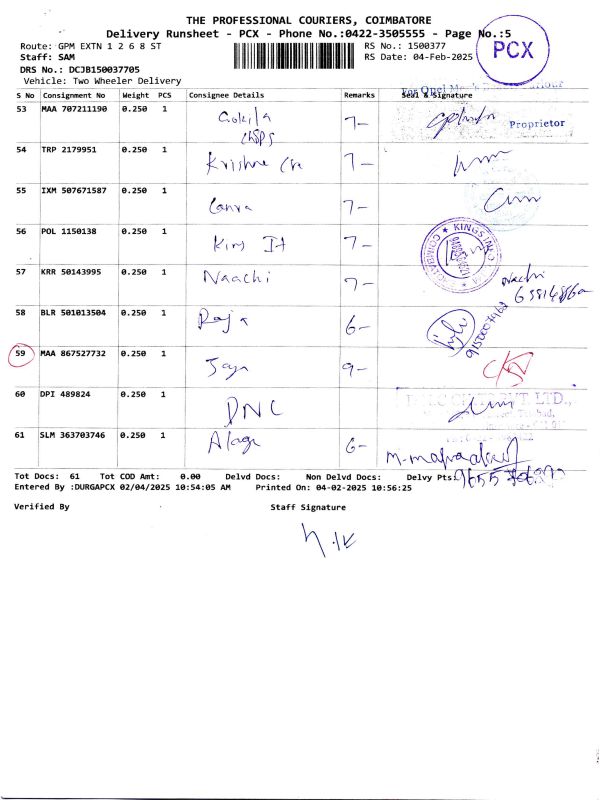 THE PROFESSIONAL COURIERS, COIMBATORE
Delivery Runsheet - PCX - Phone No.:0422-3505555 - Page No.:5
PCX
Route: GPM EXTN 1 2 6 8 ST
RS No.: 1500377
Staff: SAM
RS Date: 04-Feb-2025
DRS No.: DCJB150037705
Vehicle: Two Wheeler Delivery
S No Consignment No Weight PCS Consignee Details Remarks Seal & Signature
53 MAA 707211190 0.250 1 Gokila Chips 7-
Proprietor
54 TRP 2179951 0.250 1 Krishna 7-
55 IXM 507671587 0.250 1 Canra 7-
56 POL 1150138 0.250 1 King It 7-
KINGS INFO
57 KRR 50143995 0.250 1 Naachi 7-
Nachi
58 BLR 501013504 0.250 1 Raja 6-
59 MAA 867527732 0.250 1 Jaya 9-
60 DPI 489824 0.250 1 DNC
PVT. LTD.,
61 SLM 363703746 0.250 1 6-
Tot Docs: 61 Tot COD Amt: 0.00 Delvd Docs: Non Delvd Docs: Delvy Pts:
Entered By :DURGAPCX 02/04/2025 10:54:05 AM Printed On: 04-02-2025 10:56:25
Verified By Staff Signature